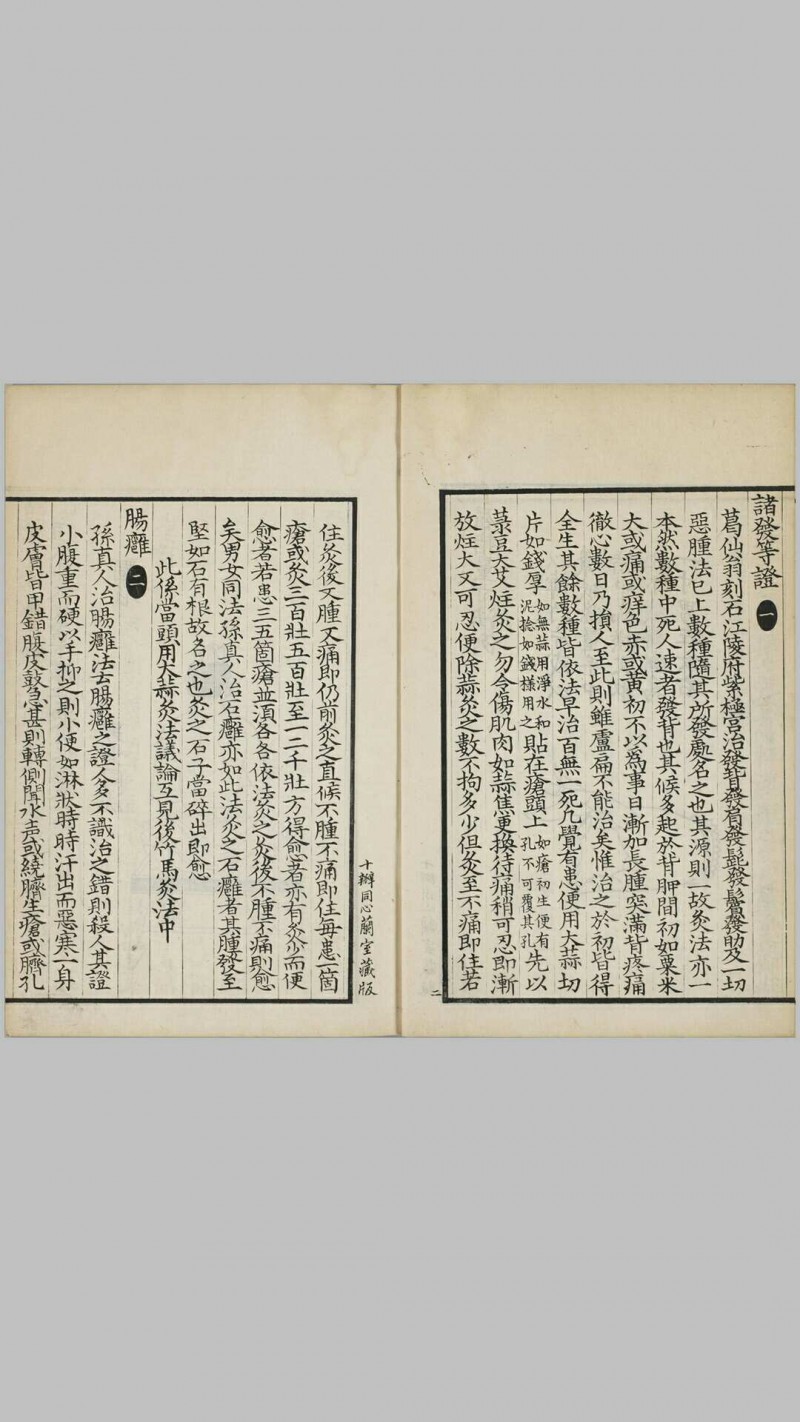 諸發等證 一
葛仙翁刻石江陵府紫極宮治發背發眉發髭發鬢發肋及一切
惡腫法已上數種隨其所發處名之也其源則一故灸法亦一
本然數種中死人速者發背也其候多起於背胛間初如粟米
大或痛或痒色赤或黃初不以為事日漸加長腫突滿背疼痛
徹心數日乃損人至此則雖盧扁不能治矣惟治之於初皆得
全生其餘數種皆依法早治百無一死凡覺有患便用大蒜切
片如錢厚
如無蒜用淨水和
泥捻如錢樣用之
貼在瘡頭上
如瘡初生便有
孔不可覆其孔
先以
菉豆大艾炷灸之勿令傷肌肉如蒜焦更換待痛稍可忍即漸
放炷大又可忍便除蒜灸之數不拘多少但灸至不痛即住若
二
十瓣同心蘭室藏版
住灸後又腫又痛即仍前灸之直候不腫不痛即住每患一箇
瘡或灸三百壯五百壯至一二千壯方得愈者亦有灸少而便
愈者若患三五箇瘡並須各各依法灸之灸後不腫不痛則愈
矣男女同法孫真人治石癰亦如此法灸之石癰者其腫發至
堅如石有根故名之也灸之石子當碎出即愈
此係當頭用大蒜灸法議論互見後竹馬灸法中
腸癰 二
孫真人治腸癰法云腸癰之證人多不識治之錯則殺人其證
小腹重而硬以手抑之則小便如淋狀時時汗出而惡寒一身
皮膚皆甲錯腹皮鼓急甚則轉側聞水声或繞臍生瘡或臍孔